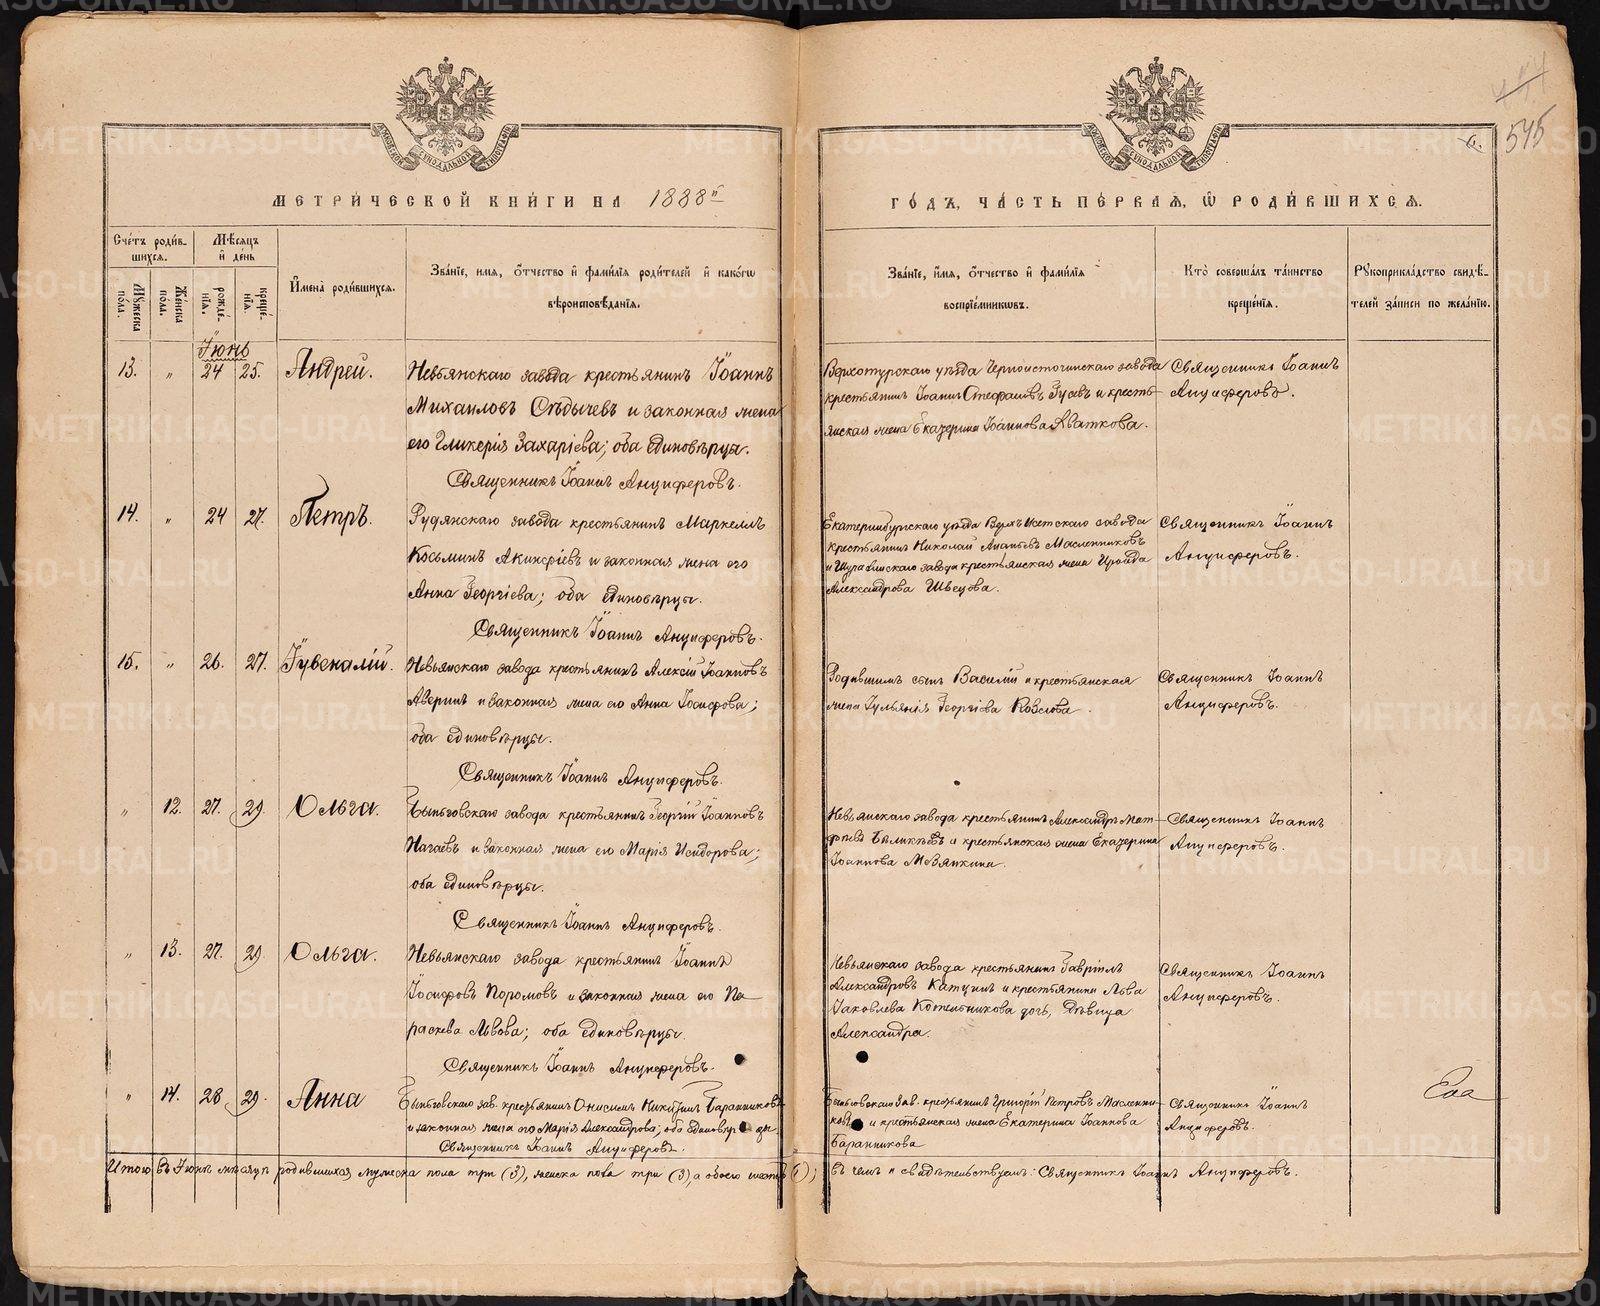 545
6.
МОСКОВСКОЙ СѴНОДАЛЬНОЙ ТИПОГРАФІИ
МОСКОВСКОЙ СѴНОДАЛЬНОЙ ТИПОГРАФІИ
МЕТРИ́ЧЕСКОЙ КНИ́ГИ НА 1888й
ГО́ДЪ, ЧА́СТЬ ПЕ́РВАЯ, Ѿ РОДИ́ВШИХСЯ.
Счётъ роди́вшихся.
Мужеска пола.
Женска пола.
Мѣсяцъ и день
рожденія.
крещенія.
Имена родившихся.
Званіе, имя, отчество и фамилія родителей и какогѡ
вѣроисповѣданія.
Званіе, имя, отчество и фамилія
воспріемниковъ.
Кто совершалъ таинство
крещенія.
Рукоприкладство свидѣ-
телей записи по желанію.
Іюнь
13. „ 24 25. Андрей.
Невьянскаго завода крестьянинъ Іоаннъ
Михаиловъ Сѣдычевъ и законная жена
его Гликерія Захаріева; оба единовѣрцы.
Священникъ Іоаннъ Анциферовъ.
Верхотурскаго уѣзда Черноисточинскаго завода
крестьянинъ Іоаннъ Стефановъ Гусевъ и кресть-
янская жена Екатерина Іоаннова Аваткова.
Священникъ Іоаннъ
Анциферовъ.
14. „ 24 27. Петръ.
Рудянскаго завода крестьянинъ Маркеллъ
Косьминъ Акинфіевъ и законная жена его
Анна Георгіева; оба единовѣрцы.
Священникъ Іоаннъ Анциферовъ.
Екатеринбургскаго уѣзда Верхъ Исетскаго завода
крестьянинъ Николай Ананьевъ Масленниковъ
и Шуралинскаго завода крестьянская жена Ираида
Александрова Швецова.
Священникъ Іоаннъ
Анциферовъ.
15. „ 26. 27. Іувеналій.
Невьянскаго завода крестьянинъ Алексій Іоанновъ
Аверинъ и законная жена его Анна Іосифова;
оба единовѣрцы.
Священникъ Іоаннъ Анциферовъ.
Родившимъ сынъ Василій и крестьянская
жена Іульянія Георгіева Козлова.
Священникъ Іоаннъ
Анциферовъ.
„ 12. 27. 29. Ольга.
Быньговскаго завода крестьянинъ Георгій Іоанновъ
Нагаевъ и законная жена его Марія Исидорова;
оба единовѣрцы.
Священникъ Іоаннъ Анциферовъ.
Невьянскаго завода крестьянинъ Александръ Мат-
фѣевъ и крестьянская жена Екатерина
Іоаннова Мезянкина.
Священникъ Іоаннъ
Анциферовъ.
„ 13. 27. 29. Ольга.
Невьянскаго завода крестьянинъ Іоаннъ
Іосифовъ Поромовъ и законная жена его Па-
раскева Львова; оба единовѣрцы.
Священникъ Іоаннъ Анциферовъ.
Невьянскаго завода крестьянинъ Гавріилъ
Александровъ Катцинъ и крестьянина Льва
Іаковлева Котельникова дочь, дѣвица
Александра.
Священникъ Іоаннъ
Анциферовъ.
„ 14. 28 29. Анна
Быньговскаго зав. крестьянинъ Онисимъ Никитинъ Баранниковъ
и законная жена его Марія Александрова; оба единовѣрцы.
Священникъ Іоаннъ Анциферовъ.
Быньговскаго зав. крестьянинъ Григорій Петровъ Масленни-
ковъ и крестьянская жена Екатерина Іоаннова
Баранникова
Священникъ Іоаннъ
Анциферовъ.
Итого въ Іюнѣ мѣсяцѣ родившихся мужеска пола три (3), женска пола три (3), а обоего шесть (6); въ чемъ и свидѣтельствуемъ: Священникъ Іоаннъ Анциферовъ.
METRIKI.GASO-URAL.RU